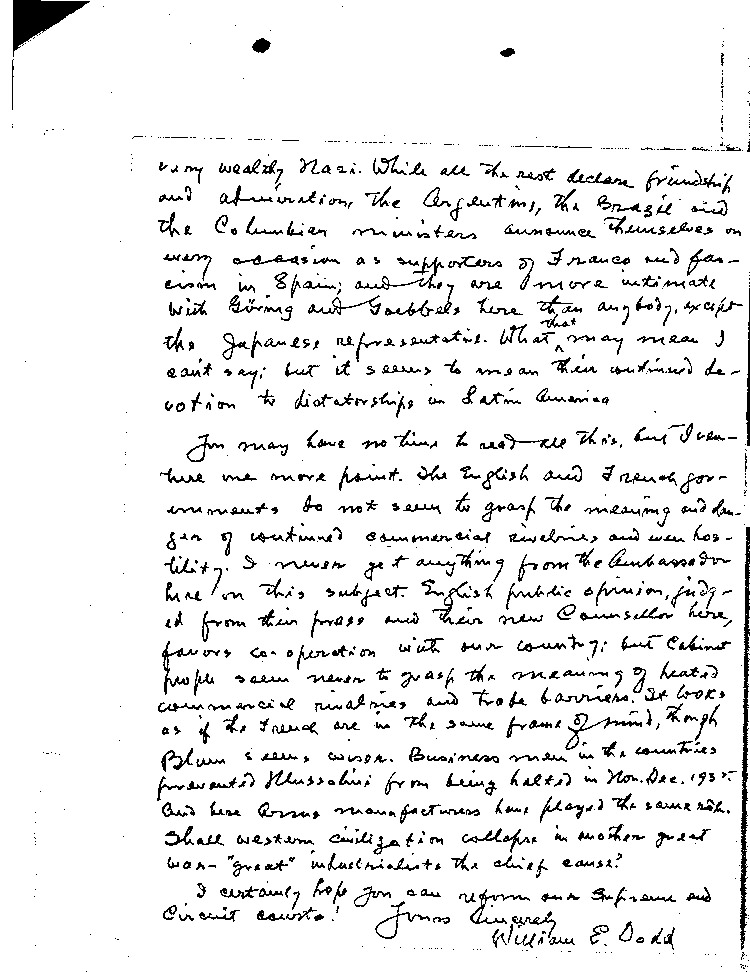 very wealthy Nazi. While all the rest declare friendship
and admiration, the Argentine, the Brazil and
the Columbian ministers announce themselves on
every occasion as supporters of Franco and fas-
cism in Spain; and they are more intimate
with Göring and Goebbels here than anybody, except
the Japanese representative. What that may mean I
can't say; but it seems to mean their continued de-
votion to dictatorships in Latin America
You may have no time to read all this, but I ven-
ture one more point. The English and French gov-
ernments do not seem to grasp the meaning and dan-
ger of continued commercial rivalries and even hos-
tility. I never get anything from the Ambassador
here on this subject. English public opinion, judg-
ed from their press and their new Counsellor here,
favors co-operation with our country; but Cabinet
people seem never to grasp the meaning of heated
commercial rivalries and trade barriers. It looks
as if the French are in the same frame of mind, though
Blum seems wiser. Business men in the countries
prevented Mussolini from being halted in Nov. Dec. 1935.
And here Arms manufacturers have played the same rôle.
Shall western civilization collapse in another great
war - "great" industrialists the chief cause?
I certainly hope you can reform our Supreme and
Circuit courts! Yours Sincerely
William E. Dodd